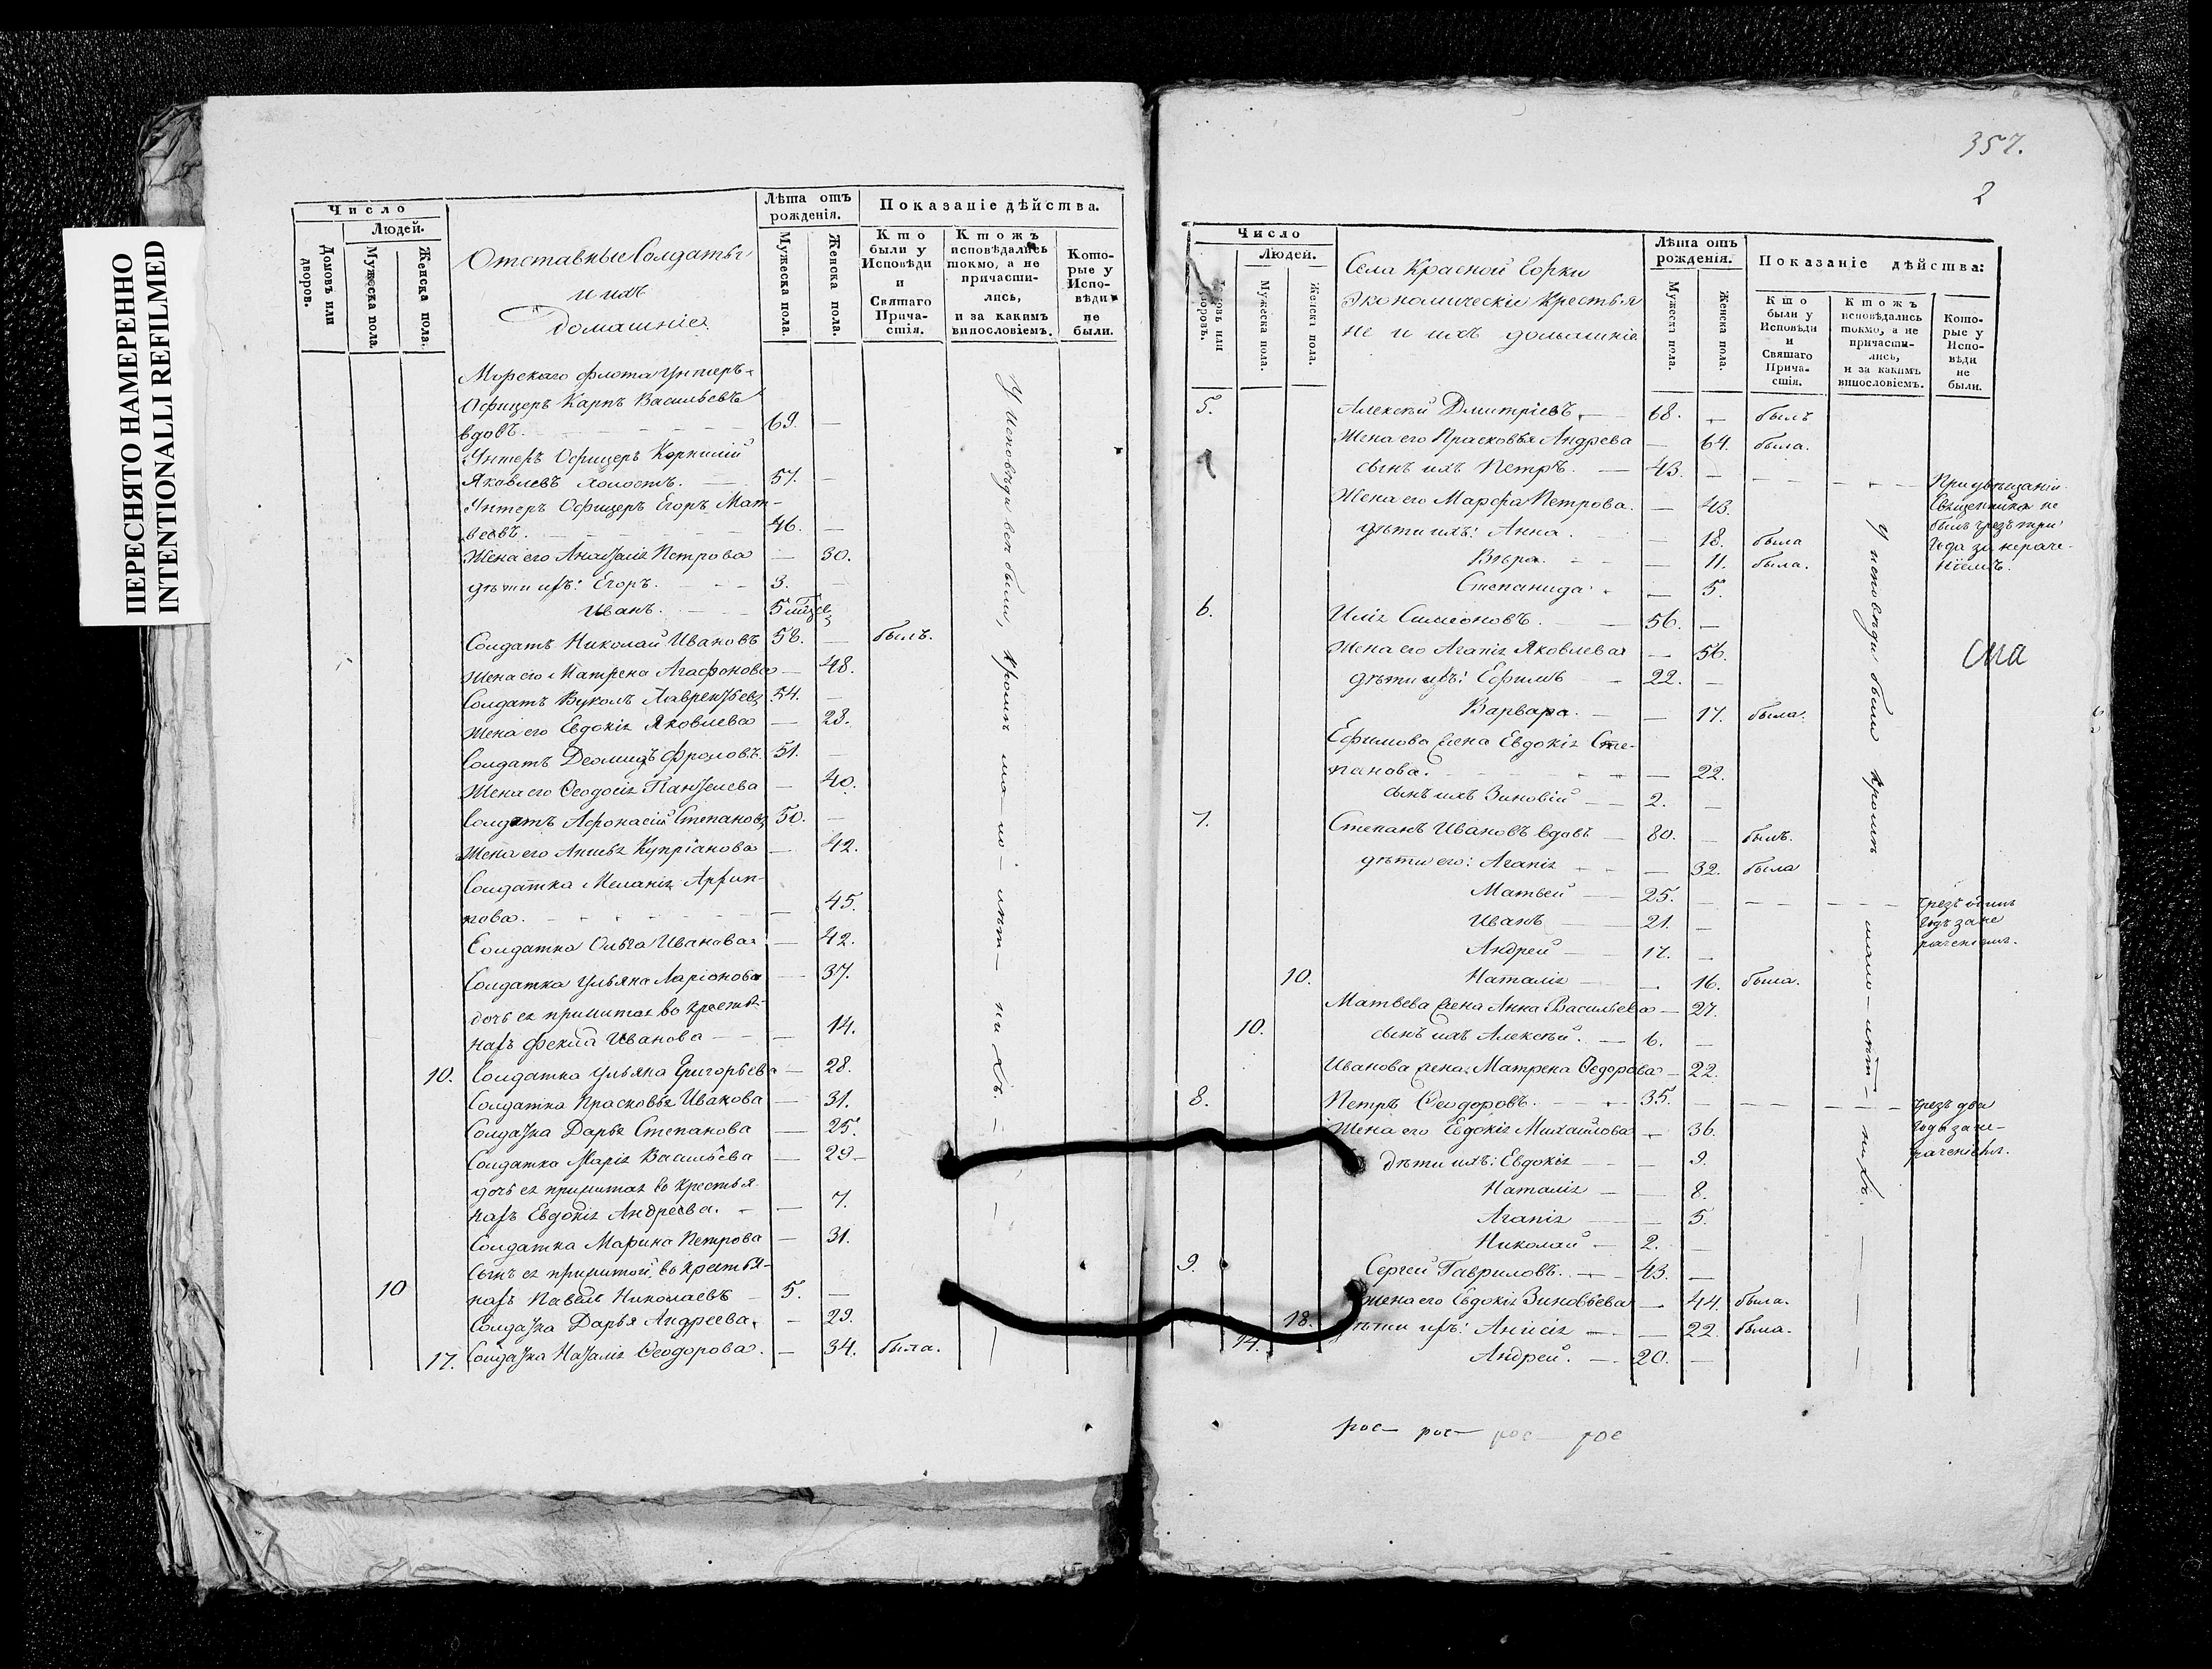 ПЕРЕСНЯТО НАМЕРЕННО
INTENTIONALLI REFILMED
Число
Людей.
Домовъ или дворовъ.
Мужеска пола.
Женска пола.
Отставные Солдаты
и ихъ
домашніе.
Лѣта отъ рожденія.
Мужеска пола.
Женска пола.
Показаніе дѣйства.
Кто были у Исповѣди и Святаго Причастія.
Ктожъ исповѣдались токмо, а не причастились, и за какимъ винословіемъ.
Которые у Исповѣди не были.
Морскаго флота Унтеръ-
Офицеръ Карпъ Васильевъ
вдовъ. 69. —
Унтеръ Офицеръ Корнилій
Яковлевъ холостъ. — 57. —
Унтеръ Офицеръ Егоръ Мат-
веевъ. 46. —
Жена его Анастасія Петрова — 30.
дѣти ихъ: Егоръ. 3. —
Иванъ. 5
Солдатъ Николай Ивановъ 58. — былъ.
Жена его Матрена Агафонова — 48.
Солдатъ Вуколъ Лаврентьевъ 54. —
Жена его Евдокія Яковлева — 28.
Солдатъ Деомидъ Фроловъ. 51. —
Жена его Ѳеодосія Пантелева — 40.
Солдатъ Афонасій Степановъ 50. —
Жена его Анисья Купріанова — 42.
Солдатка Меланія Архип-
пова. — 45.
Солдатка Ольга Иванова — 42.
Солдатка Ульяна Ларіонова — 37.
дочь ея прижитая во крестья-
нахъ Фекла Иванова — 14.
10. Солдатка Ульяна Григорьева — 28.
Солдатка Прасковья Иванова — 31.
Солдатка Дарья Степанова — 25.
Солдатка Марія Васильева — 29.
дочь ея прижитая во крестья-
нахъ Евдокія Андреева. — 7.
Солдатка Марина Петрова — 31.
Сынъ ея прижитой во крестья-
10 нахъ Павелъ Николаевъ 5. —
Солдатка Дарья Андреева. — 29.
17. Солдатка Наталія Ѳеодорова. — 34. была.
У исповѣди всѣ были, кромѣ ма-ло-лѣт-ни хъ.
357.
2
Число
Людей.
Домовъ или дворовъ.
Мужеска пола.
Женска пола.
Села Красной Горки
Экономическіе Крестья
не и ихъ домашніе
Лѣта отъ рожденія.
Мужеска пола.
Женска пола.
Показаніе дѣйства:
Кто были у Исповѣди и Святаго Причастія.
Ктожъ исповѣдались токмо, а не причастились, и за какимъ винословіемъ.
Которые у Исповѣди не были.
5. Алексѣй Дмитріевъ. — 68. — былъ
Жена его Прасковья Андрева — 64. была.
сынъ ихъ Петръ. — 43. —
При увѣщаніи
Священника не
былъ чрезъ три
года за нераче-
ніемъ.
Жена его Марфа Петрова. — 43.
дѣти ихъ: Анна. — 18. была
Вѣра. — 11. была.
Степанида — 5.
6. Илія Симеоновъ. — 56. —
Жена его Агапія Яковлева — 56.
дѣти ихъ: Ефимъ — 22. —
Варвара. — 17. была.
Ефимова жена Евдокія Сте-
панова. — 22.
сынъ ихъ Зиновій — 2. —
7. Степанъ Ивановъ вдовъ — 80. — былъ.
дѣти его: Агапія — 32. была
Матвей — 25. —
чрезъ одинъ
годъ за не
раченіемъ.
Иванъ — 21. —
Андрей — 17. —
10. Наталія — 16. была.
Матвева жена Анна Васильева — 27.
10. сынъ ихъ Алексѣй. — 6. —
Иванова жена Матрена Ѳедорова — 22.
8. Петръ Ѳеодоровъ. — 35. —
чрезъ два
года за не-
раченіемъ.
Жена его Евдокія Михайлова — 36.
дѣти ихъ: Евдокія — 9.
Наталія — 8.
Агапія — 5.
Николай — 2. —
9. Сергей Гавриловъ. — 43. —
Жена его Евдокія Зиновьева — 44. была.
18. дѣти ихъ: Анисія — 22. была.
14. Андрей. — 20. —
У исповѣди были кромѣ мало-лѣт-нихъ.
рос— рос— рос— рос